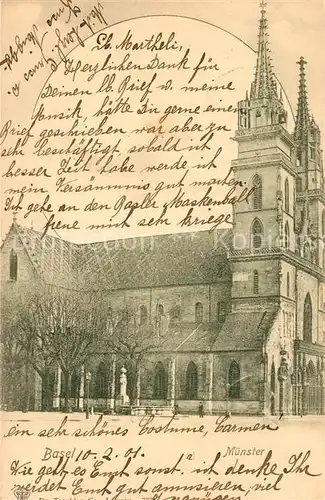 Lb. Martheli,
Herzlichen Dank für
Deinen lb. Brief u. meine
Musik, hätte Dir gerne einen
Brief geschrieben war aber zu
sehr beschäftigt sobald ich
besser Zeit habe werde ich
mein Versäumnis gut machen.
Ich gehe an den Basler Maskenball
freue mich sehr kriege
ein sehr schönes Costume, Carmen
Basel 10.2.01. Münster
Wie geht es Emy sonst? ich denke Ihr
werdet Emy gut amusieren viel